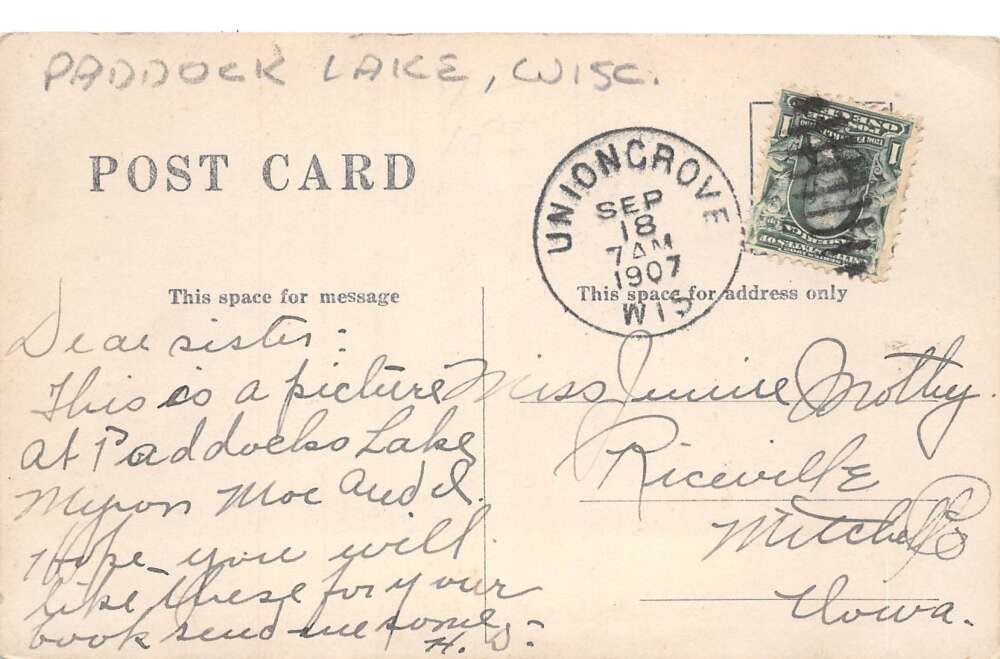 PADDOCK LAKE, WISC.
POST CARD
UNIONGROVE
SEP
18
7 AM
1907
WIS
1 ONE CE 1
AMERICA
This space for message
This space for address only
Dear sister:
This is a picture
at Paddocks Lake
Myron Moe and I.
Hope you will
like these for your
book send me some
H. S.
Miss Jennie Mothey.
Riceville
Mitchell Co
Iowa.